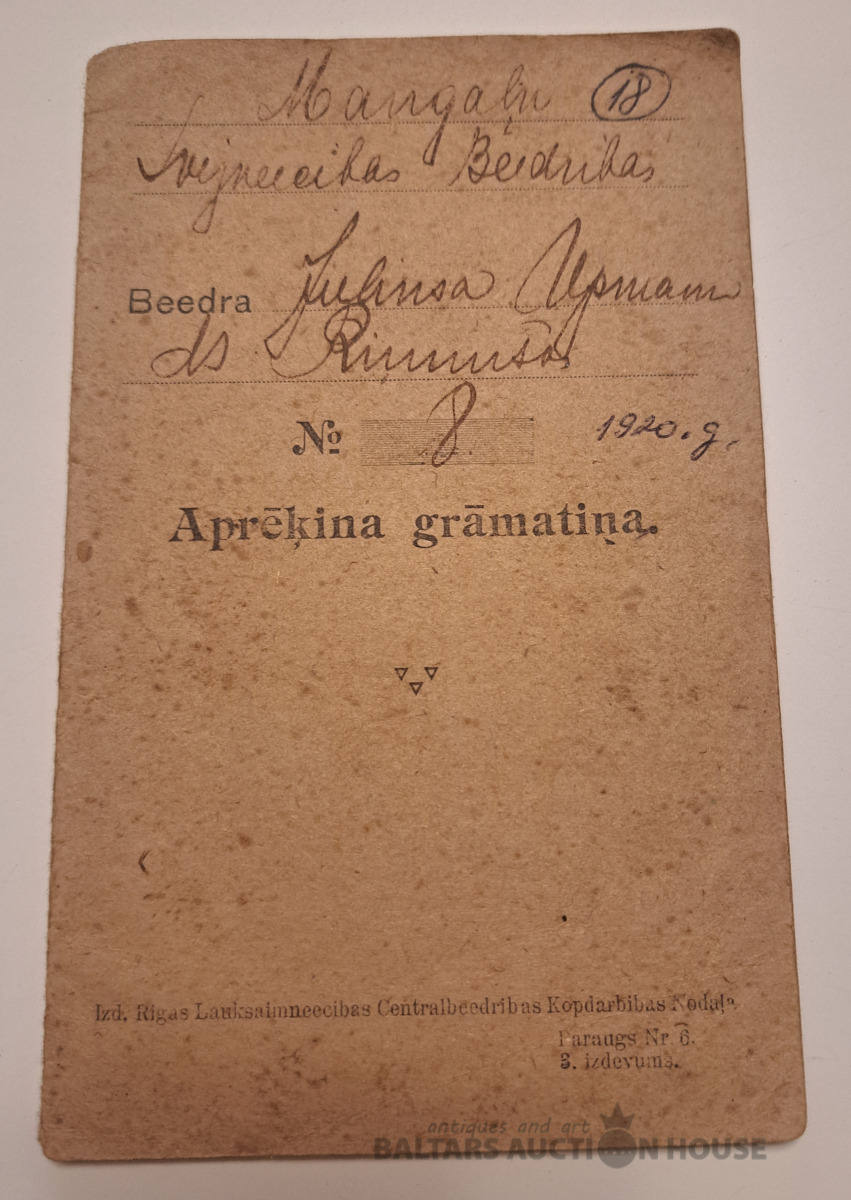 Mangaļu 18
Svejneecibas Beedribas
Beedra Juliusa Upmann
ds Rinnušos
№ 8 1920. g.
Aprēķina grāmatiņa.
Izd. Rigas Lauksaimneecibas Centralbeedribas Kopdarbibas Nodaļa.
Paraugs Nr. 6.
3. izdevums.
antiques and art
BALTARS AUCTION HOUSE